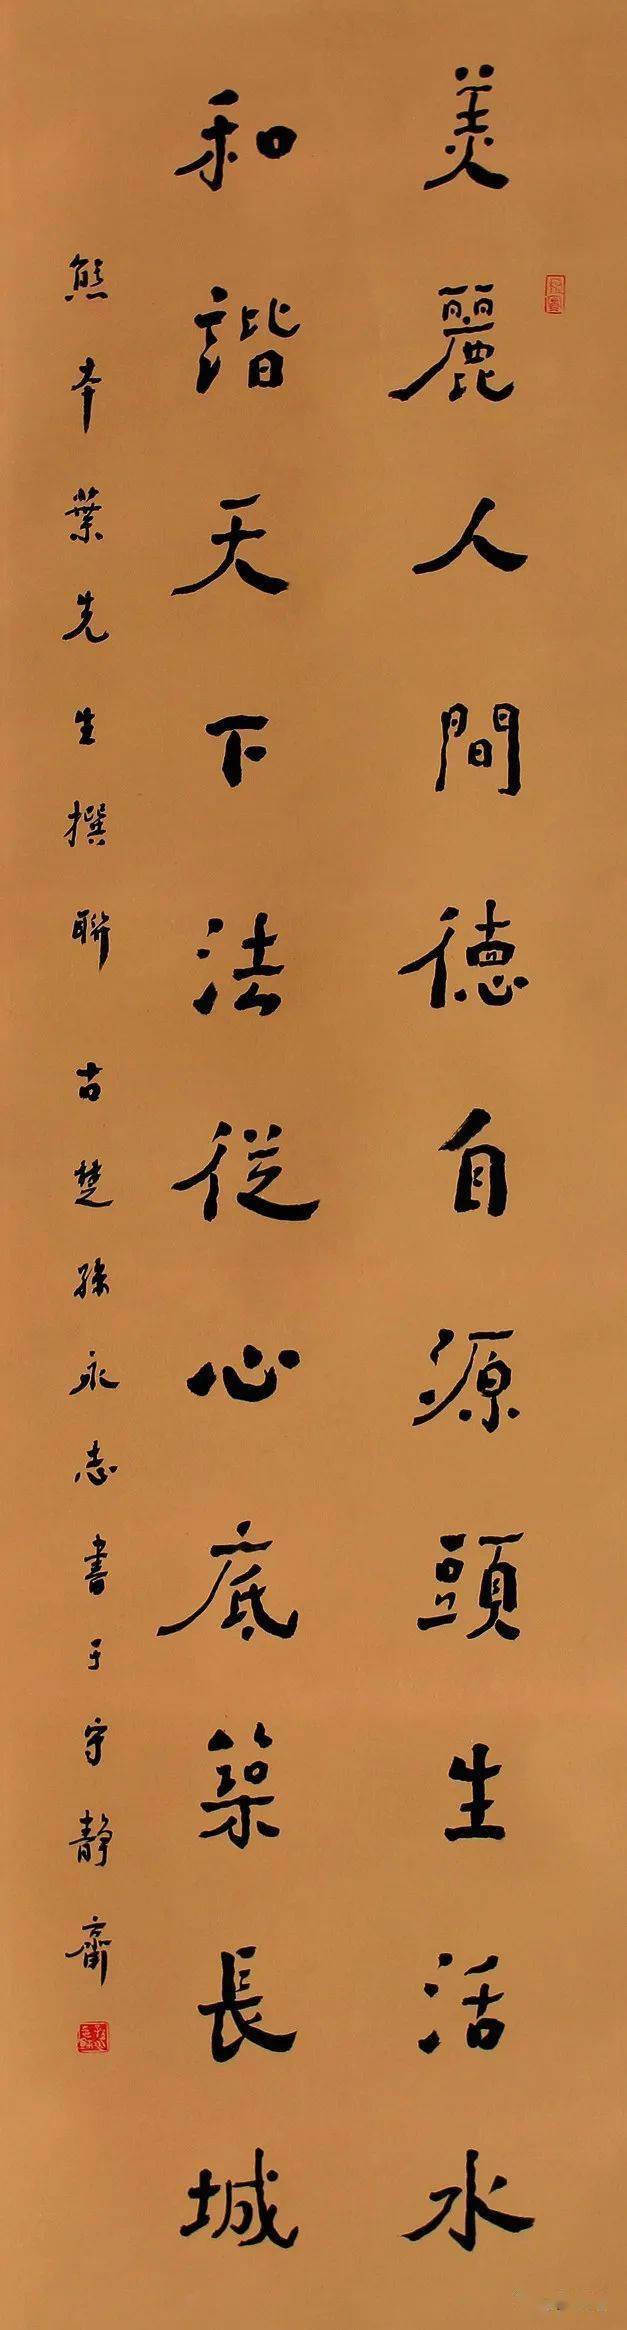 美麗人間德自源頭生活水
和諧天下法從心底築長城
熊本業先生撰聯 古楚孫永志書于守靜齋